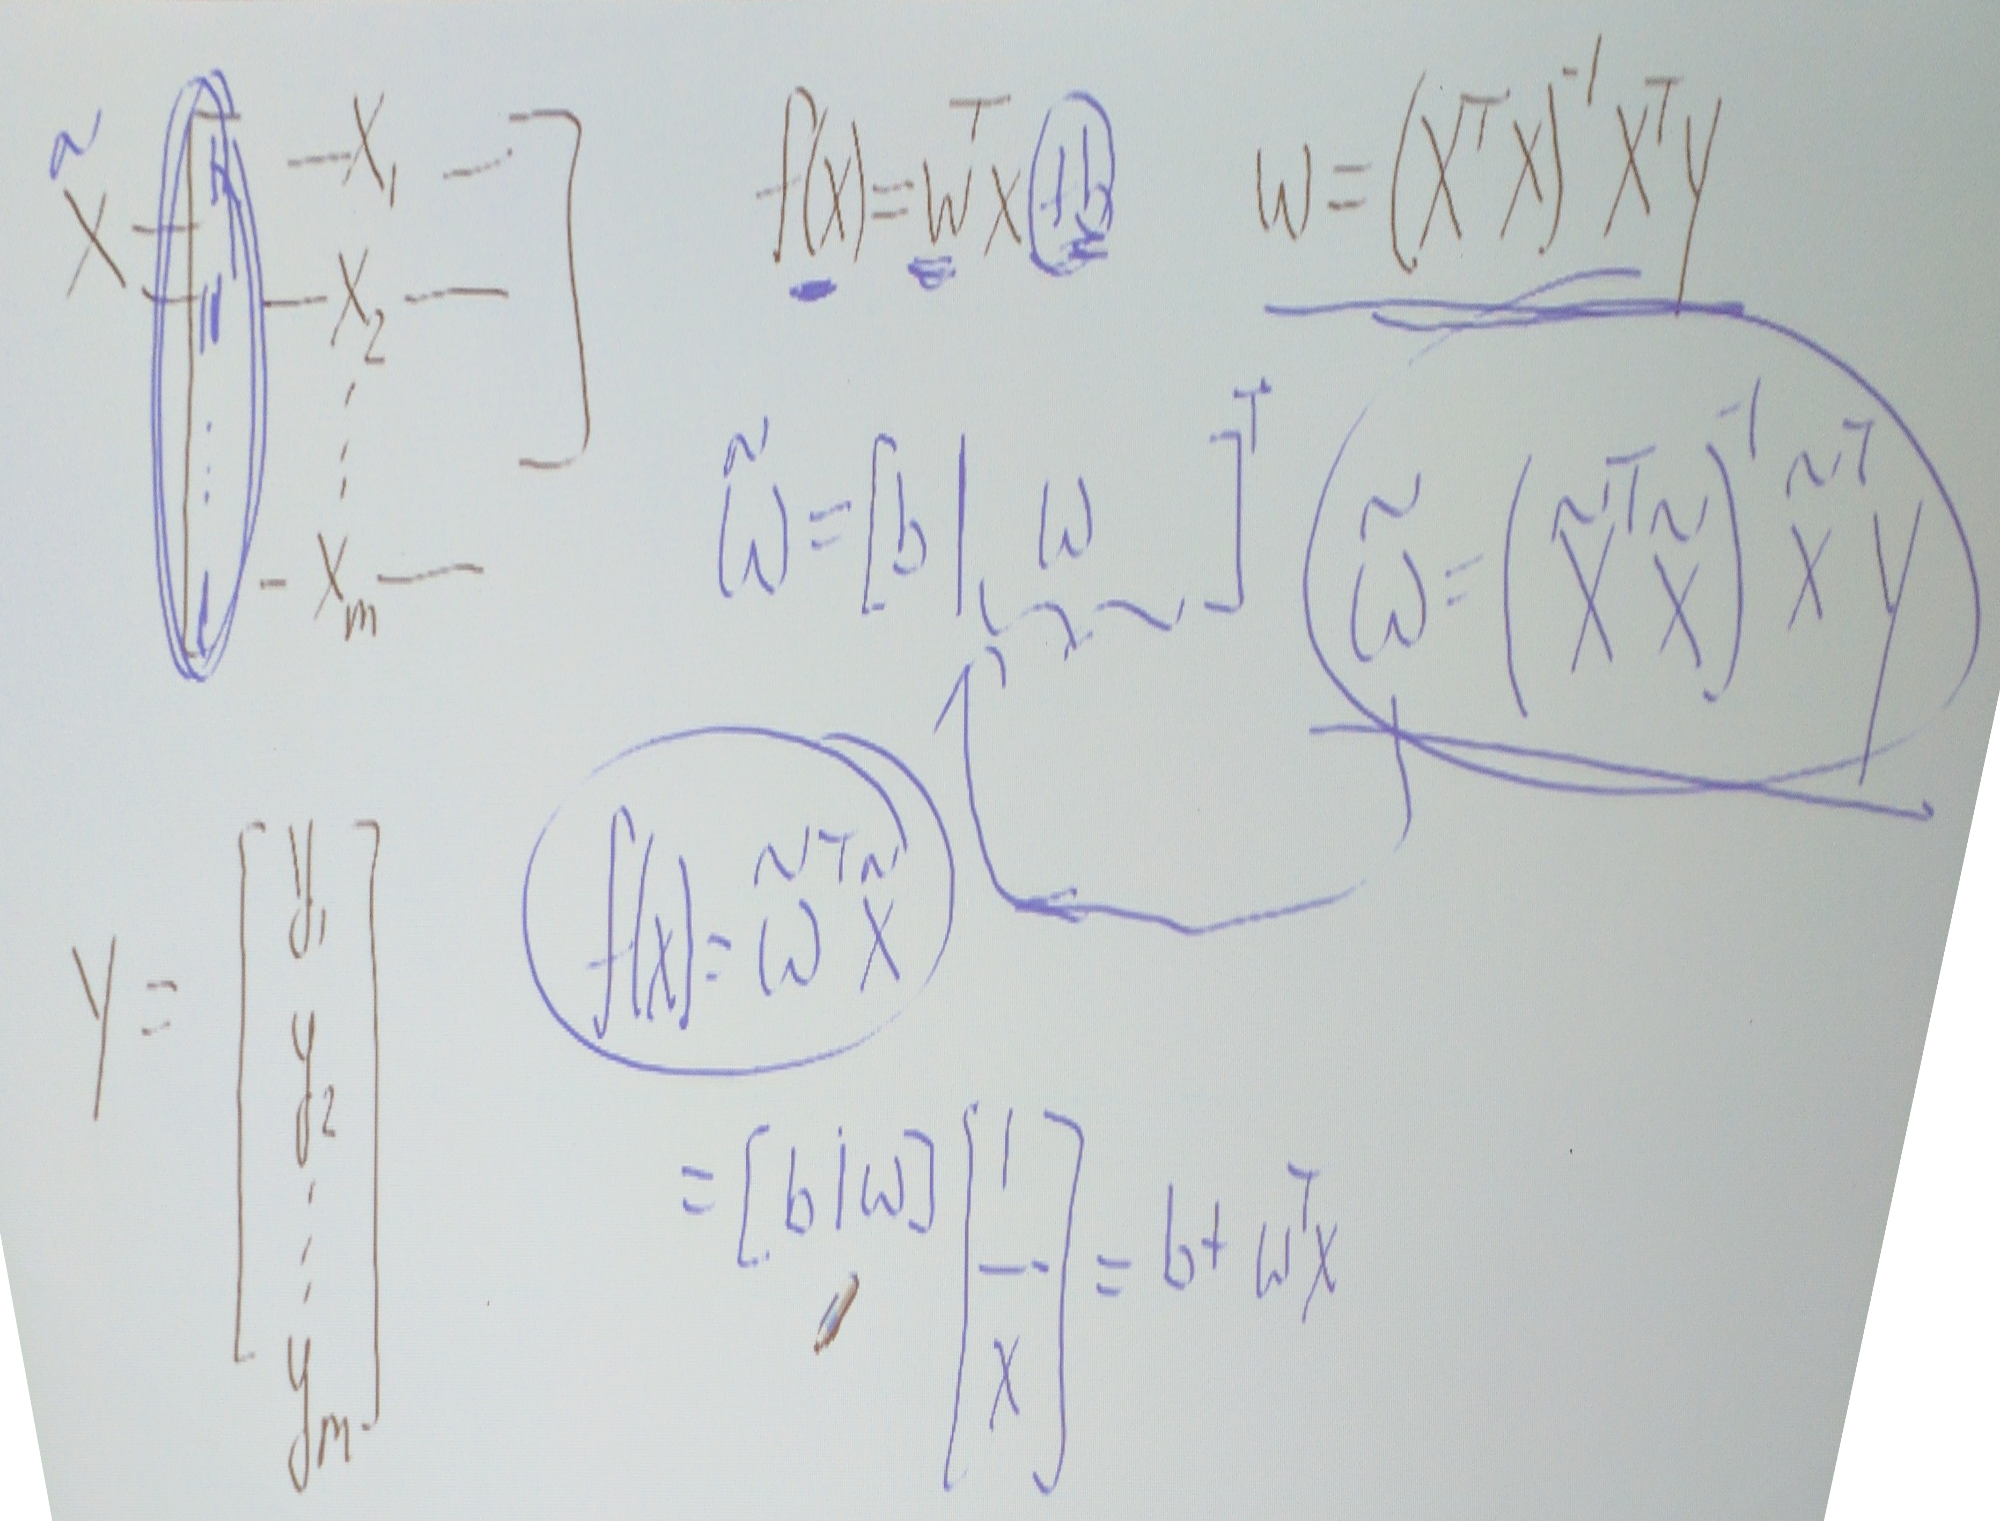 X̃ = [ 1 — x₁ —
1 — x₂ —
⋮ ⋮
1 — xₘ — ]
f(x) = wᵀx + b
w = (XᵀX)⁻¹Xᵀy
w̃ = [b | w]ᵀ
w̃ = (X̃ᵀX̃)⁻¹X̃ᵀy
y = [ y₁
y₂
⋮
yₘ ]
f(x) = w̃ᵀx̃
= [b | w] [ 1
—
x ] = b + wᵀx